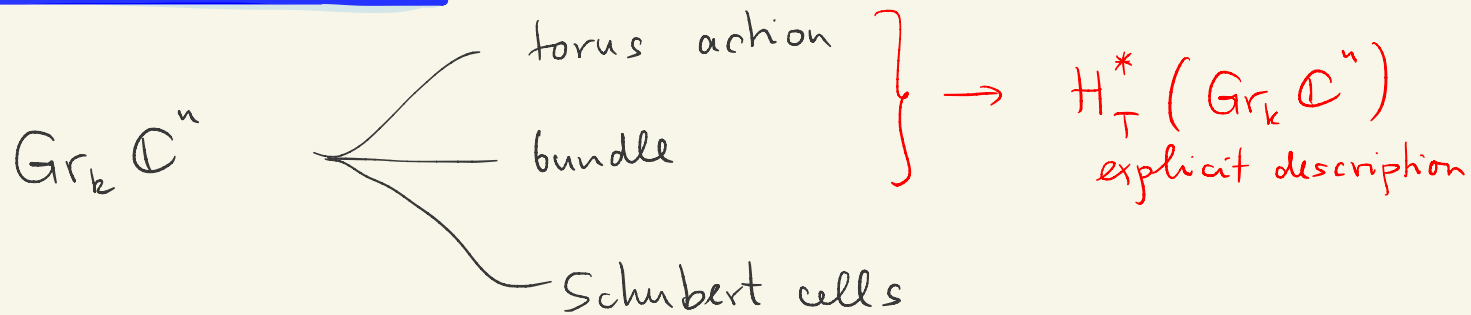 torus action
Gr_k ℂ^n
bundle
Schubert cells
→ H^*_T (Gr_k ℂ^n)
explicit description